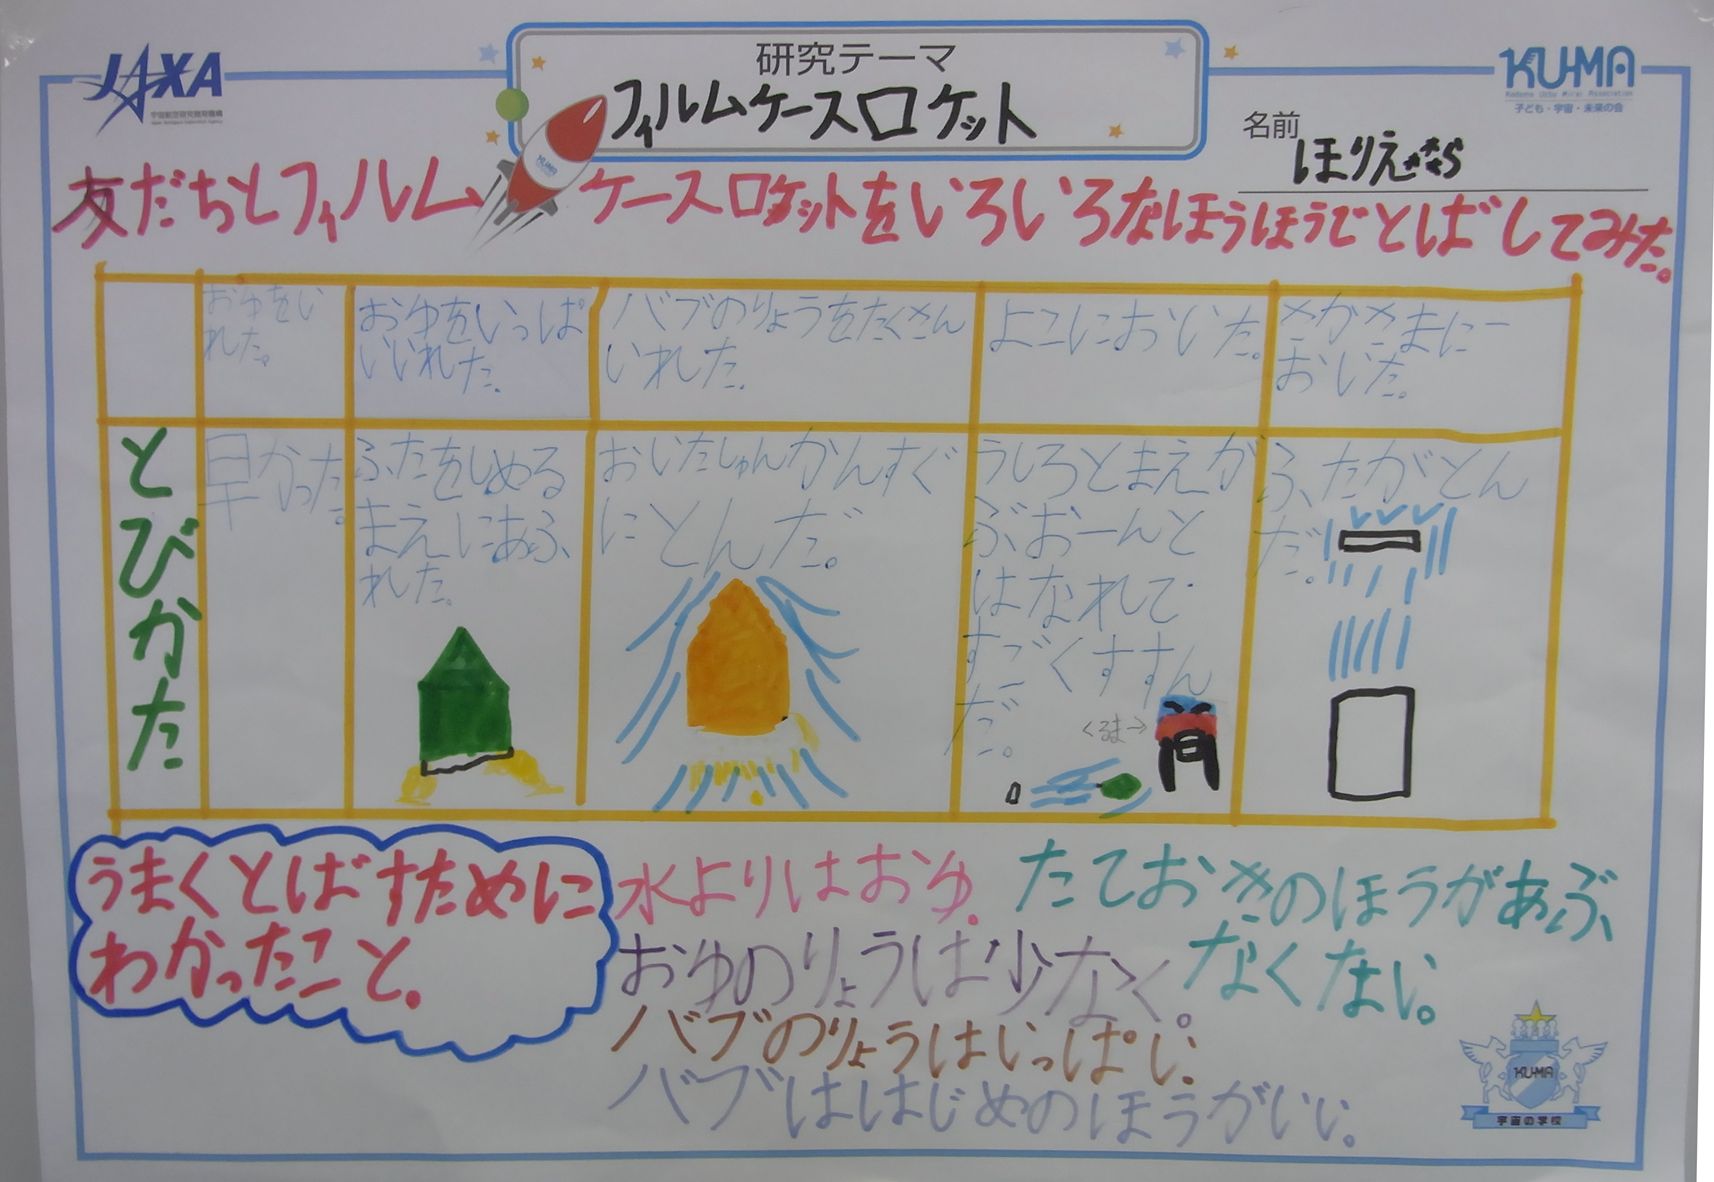 JAXA
宇宙航空研究開発機構
Japan Aerospace Exploration Agency
研究テーマ
フィルムケースロケット
KU-MA
Kodomo Uchu Mirai Association
子ども・宇宙・未来の会
名前
ほりえ
KU-MA
友だちとフィルムケースロケットをいろいろなほうほうでとばしてみた。
おゆをい
れた。
おゆをいっぱ
いいれた。
バブのりょうをたくさん
いれた。
よこにおいた。
さかさまにー
おいた。
とびかた
早かった。
ふたをしめる
まえにあふ
れた。
おいたしゅんかんすぐ
にとんだ。
うしろとまえが
ぶおーんと
はなれて
すごくすすん
だ。
くるま→
ふたがとん
だ。
うまくとばすために
わかったこと。
水よりはおゆ。
おゆのりょうは少なく。
バブのりょうはいっぱい。
バブははじめのほうがいい。
たておきのほうがあぶ
なくない。
KU-MA
宇宙の学校